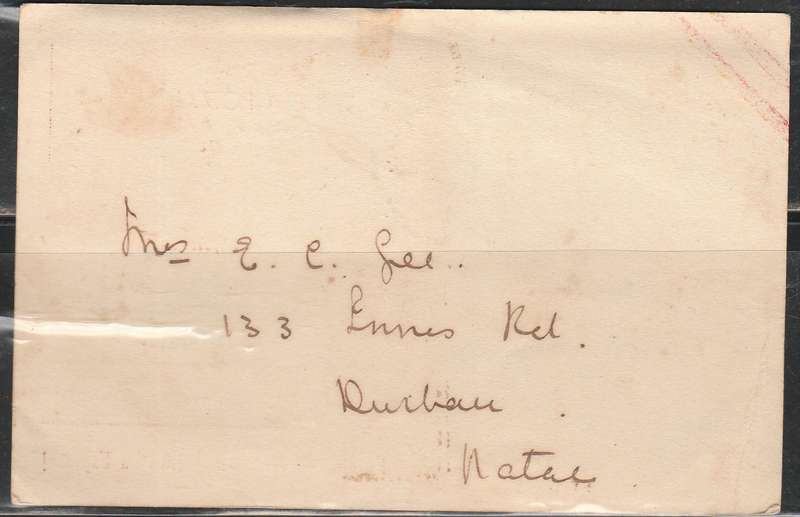 Mrs E. C. Gee.
133 Innes Rd.
Durban.
Natal.